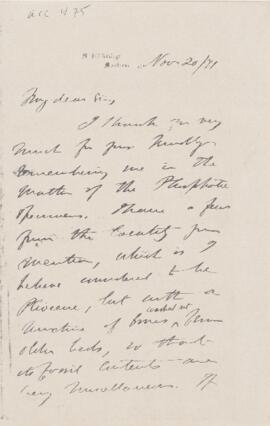 acc 475
Nov 20/71
My dear Sir,
I thank you very
much for your kindly
remembering me in the
matter of the Phosphate
specimens. I have a few
from the locality you
mention, which is I
believe considered to be
Pliocene, but with a
of bones washed out from
older beds, so that
its fossil contents are
very miscellaneous. If